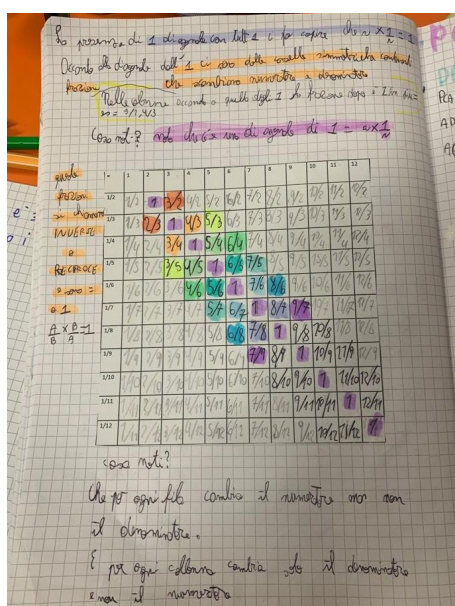 La presenza di 1 diagonale con tutti 1 ci fa capire che n × 1/n = 1
Accanto alla diagonale dell'1 ci sono delle caselle simmetriche
frazioni che scambiano numeratore e denominatore
Nelle colonne accanto a quelle degli 1 la frazione dopo è
es = 3/2, 4/3
Cosa noti? noto che c'è una diagonale di 1 = n × 1/n
queste
frazioni
si chiamano
INVERSE
o
RECIPROCE
e sono =
a 1
A/B × B/A = 1
× 1 2 3 4 5 6 7 8 9 10 11 12
1/2 1/2 1 3/2 4/2 5/2 6/2 7/2 8/2 9/2 10/2 11/2 12/2
1/3 1/3 2/3 1 4/3 5/3 6/3 7/3 8/3 9/3 10/3 11/3 12/3
1/4 1/4 2/4 3/4 1 5/4 6/4 7/4 8/4 9/4 10/4 11/4 12/4
1/5 1/5 2/5 3/5 4/5 1 6/5 7/5 8/5 9/5 10/5 11/5 12/5
1/6 1/6 2/6 3/6 4/6 5/6 1 7/6 8/6 9/6 10/6 11/6 12/6
1/7 1/7 2/7 3/7 4/7 5/7 6/7 1 8/7 9/7 10/7 11/7 12/7
1/8 1/8 2/8 3/8 4/8 5/8 6/8 7/8 1 9/8 10/8 11/8 12/8
1/9 1/9 2/9 3/9 4/9 5/9 6/9 7/9 8/9 1 10/9 11/9 12/9
1/10 1/10 2/10 3/10 4/10 5/10 6/10 7/10 8/10 9/10 1 11/10 12/10
1/11 1/11 2/11 3/11 4/11 5/11 6/11 7/11 8/11 9/11 10/11 1 12/11
1/12 1/12 2/12 3/12 4/12 5/12 6/12 7/12 8/12 9/12 10/12 11/12 1
cosa noti?
Che per ogni fila cambia il numeratore ma non
il denominatore.
E per ogni colonna cambia solo il denominatore
e non il numeratore